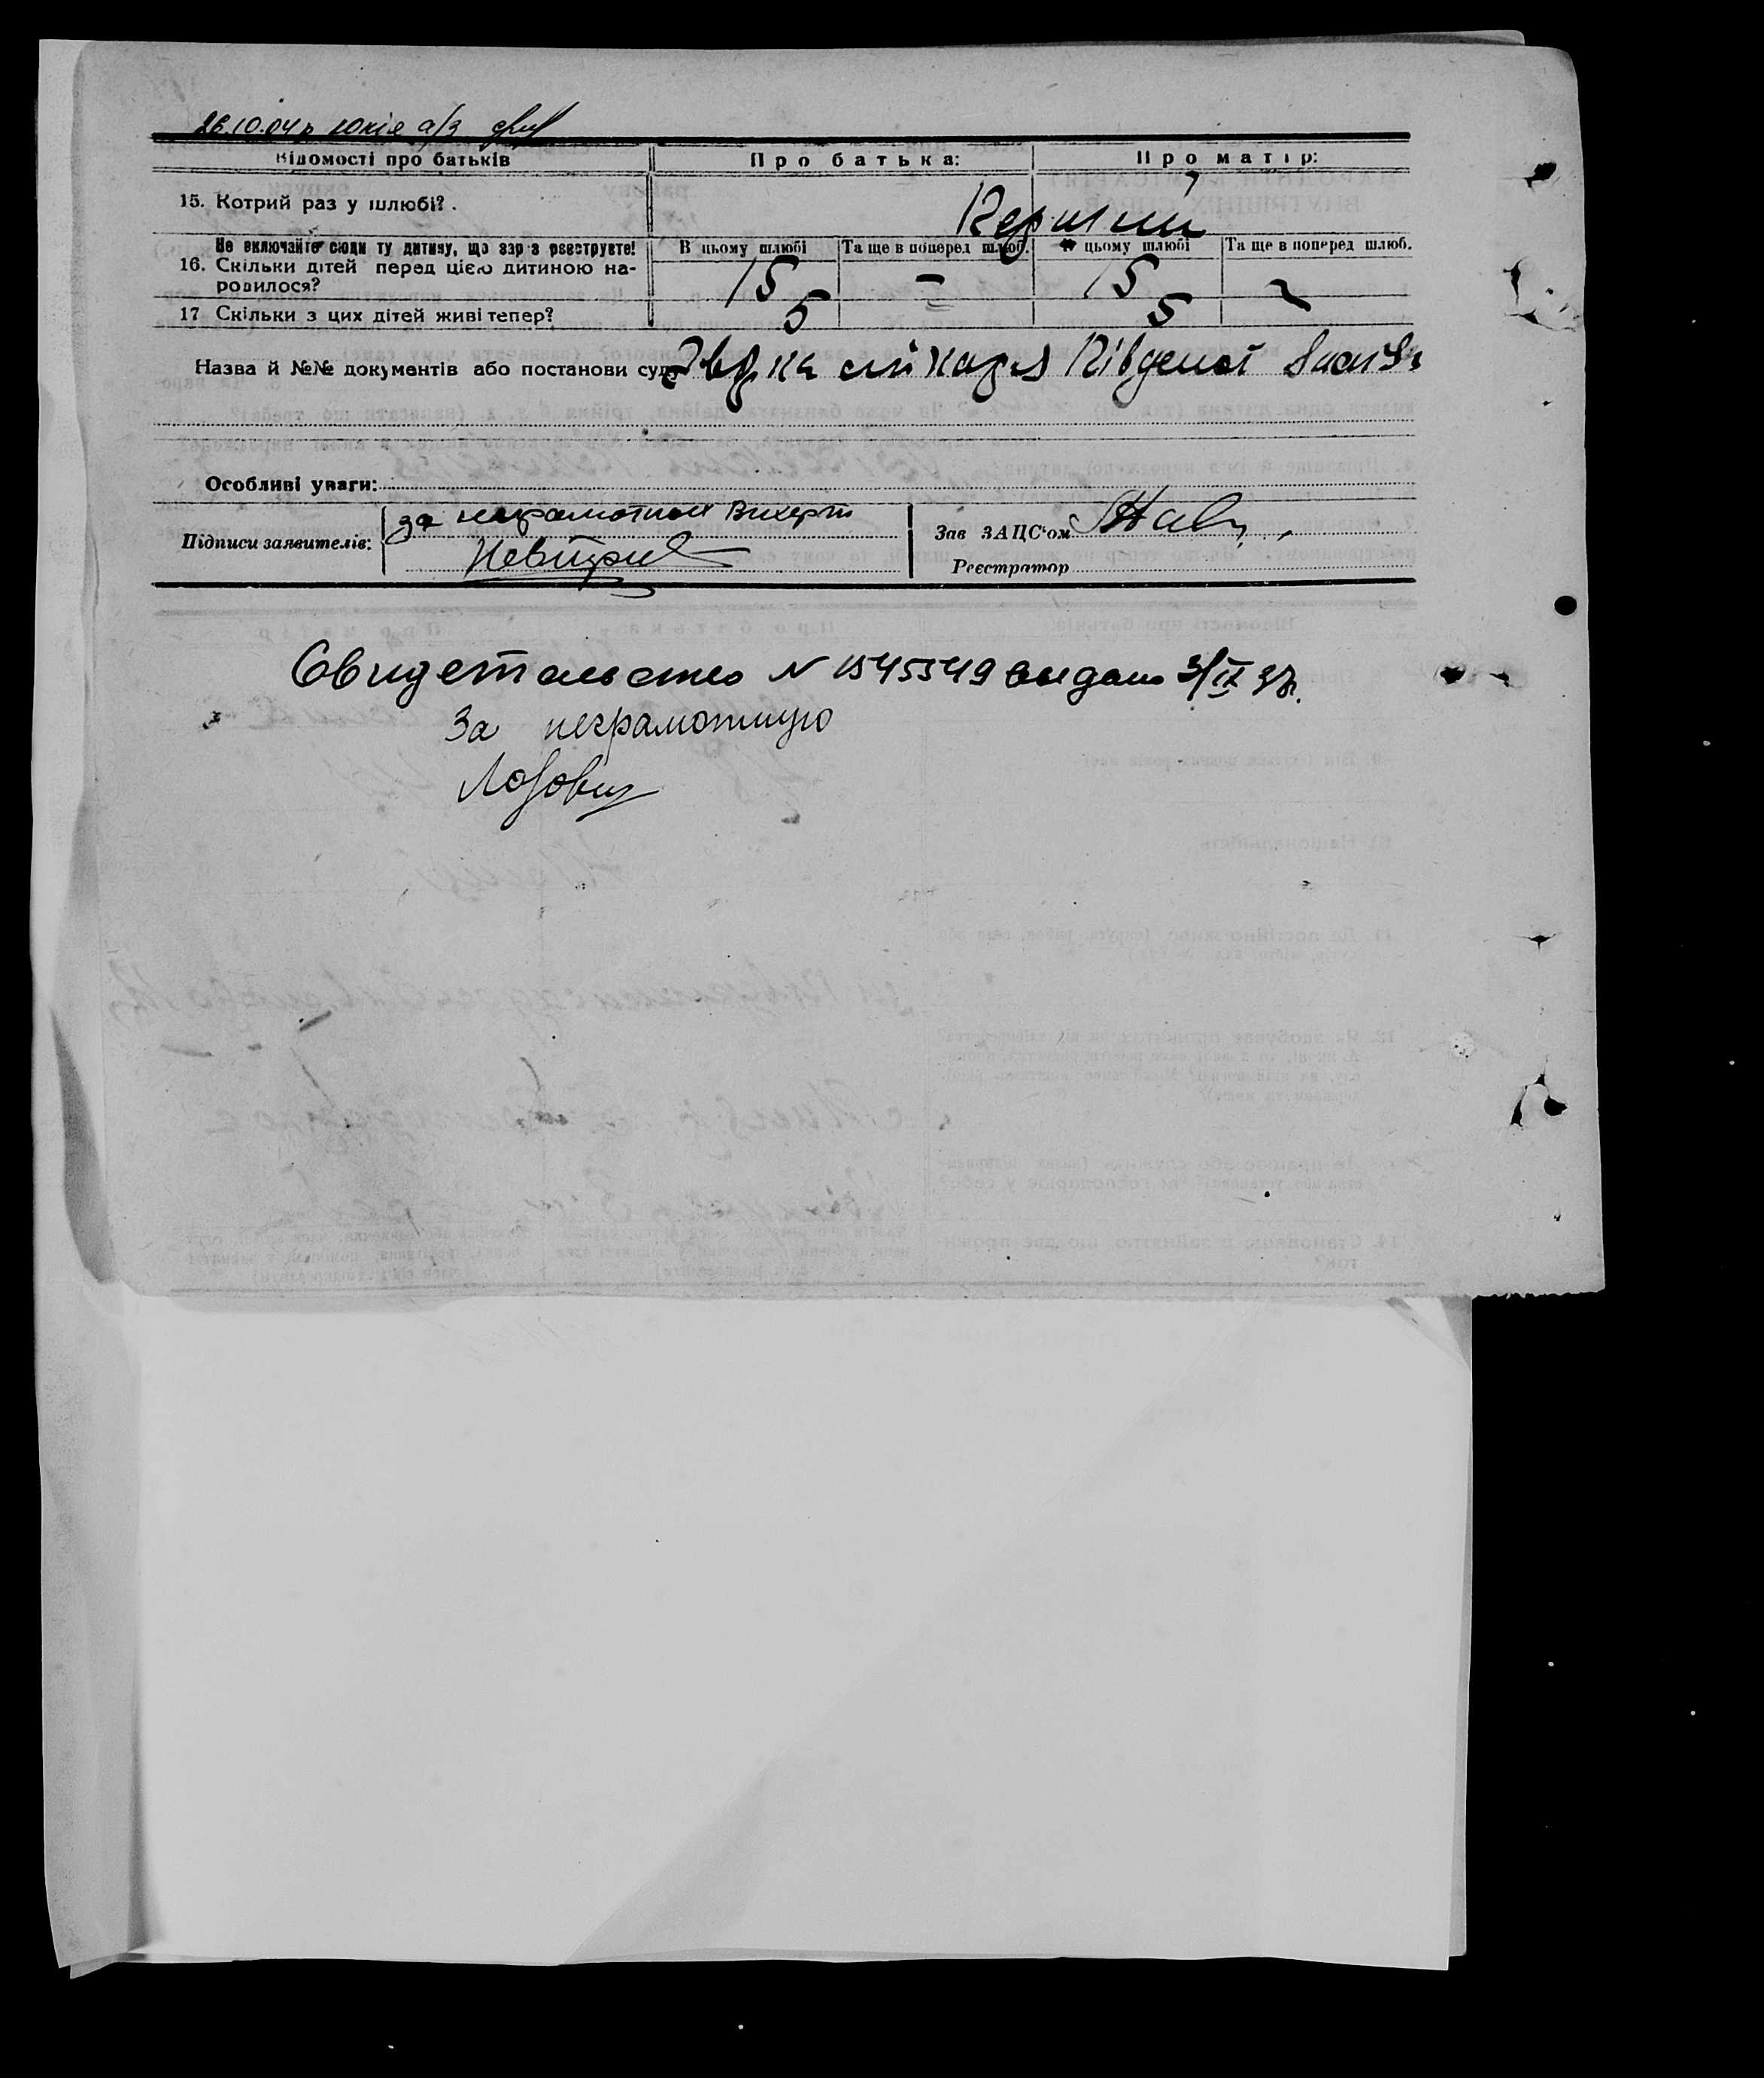 26.10.04р. копія а/з
Відомості про батьків
Про батька:
Про матір:
15. Котрий раз у шлюбі?
Перший
Не включайте сюди ту дитину, що зараз реєструєте!
В цьому шлюбі
Та ще в поперед шлюб.
В цьому шлюбі
Та ще в поперед шлюб.
16. Скільки дітей перед цією дитиною на-
родилося?
15 – 15
17 Скільки з цих дітей живі тепер?
5 5
Назва й №№ документів або постанови суду
лікаря
Особливі уваги:
Підписи заявителів:
за неграмотной Вихерт
Зав ЗАЦС'ом
Реєстратор
Свидетельство N 1545549 выдано 3/IX 37.
За неграмотную